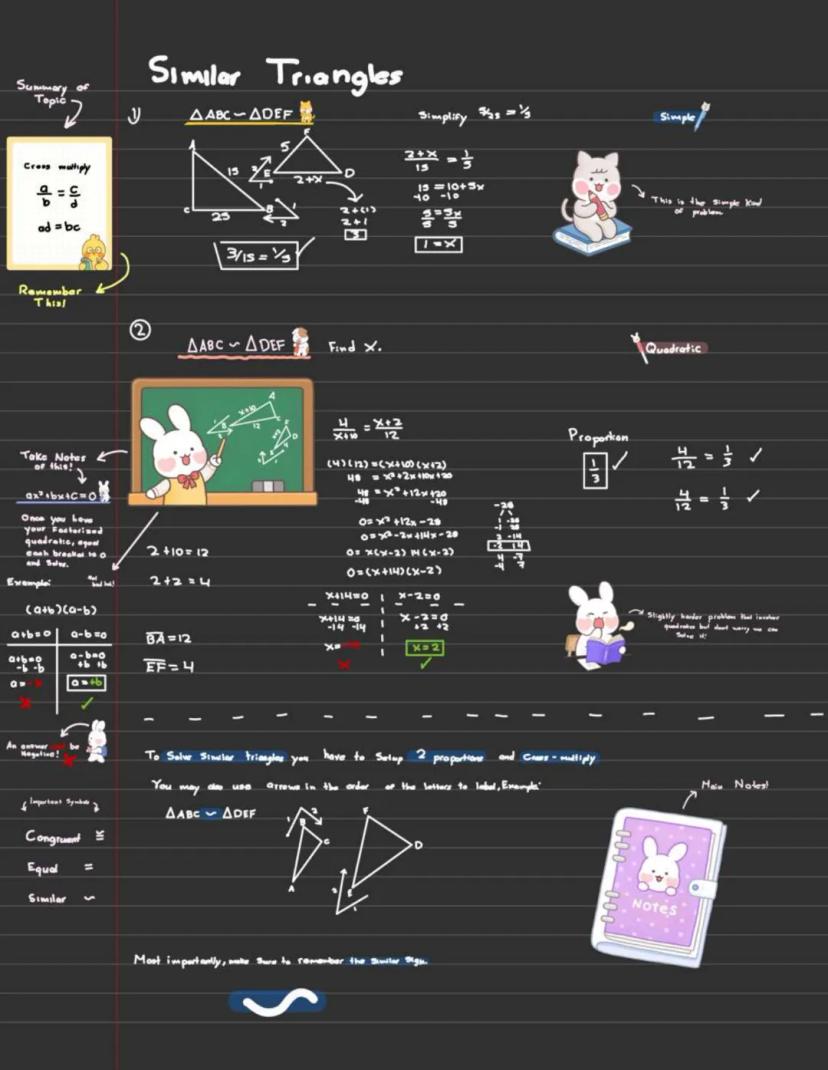 Similar Triangles
Summary of
Topic
Cross multiply
a/b = c/d
ad = bc
Remember
This!
1)
△ABC ~ △DEF
A
15
C
25
B
1
2
F
5
E
D
2+x
2
1
2+(1)
2+1
3
3/15 = 1/5
Simplify 5/25 = 1/5
2+x/15 = 1/5
15 = 10+5x
-10 -10
5/5 = 5x/5
1 = x
Simple
This is the simple kind
of problem
2
△ABC ~ △DEF Find x.
Quadratic
A
x+10
B
12
C
4/x+10 = x+2/12
(4)(12) = (x+10)(x+2)
48 = x²+2x+10x+20
48 = x²+12x+20
-48 -48
0 = x²+12x-28
0 = x²-2x+14x-28
0 = x(x-2) 14(x-2)
0 = (x+14)(x-2)
-28
1 -28
-1 28
2 -14
-2 14
4 -7
-4 7
x+14=0
x-2=0
x+14=0
-14 -14
x-2=0
+2 +2
x=-14
x=2
Proportion
1/3
4/12 = 1/3
4/12 = 1/3
Take Notes
of this!
ax²+bx+c=0
Once you have
your Factorized
quadratic, equal
each bracket to 0
and Solve.
Example:
(a+b)(a-b)
a+b=0
a-b=0
a+b=0
-b -b
a-b=0
+b +b
a=-b
a=+b
2+10=12
2+2=4
BA=12
EF=4
Slightly harder problem that involves
quadratics but dont worry we can
Solve it!
An answer be
Negative!
To Solve Similar triangles you have to Setup 2 proportions and Cross-multiply
You may also use arrows in the order of the letters to label, Example:
△ABC ~ △DEF
1
2
B
C
A
F
D
E
2
1
Main Notes!
NOTES
Important Symbols
Congruent ≅
Equal =
Similar ~
Most importantly, make sure to remember the similar sign.
~